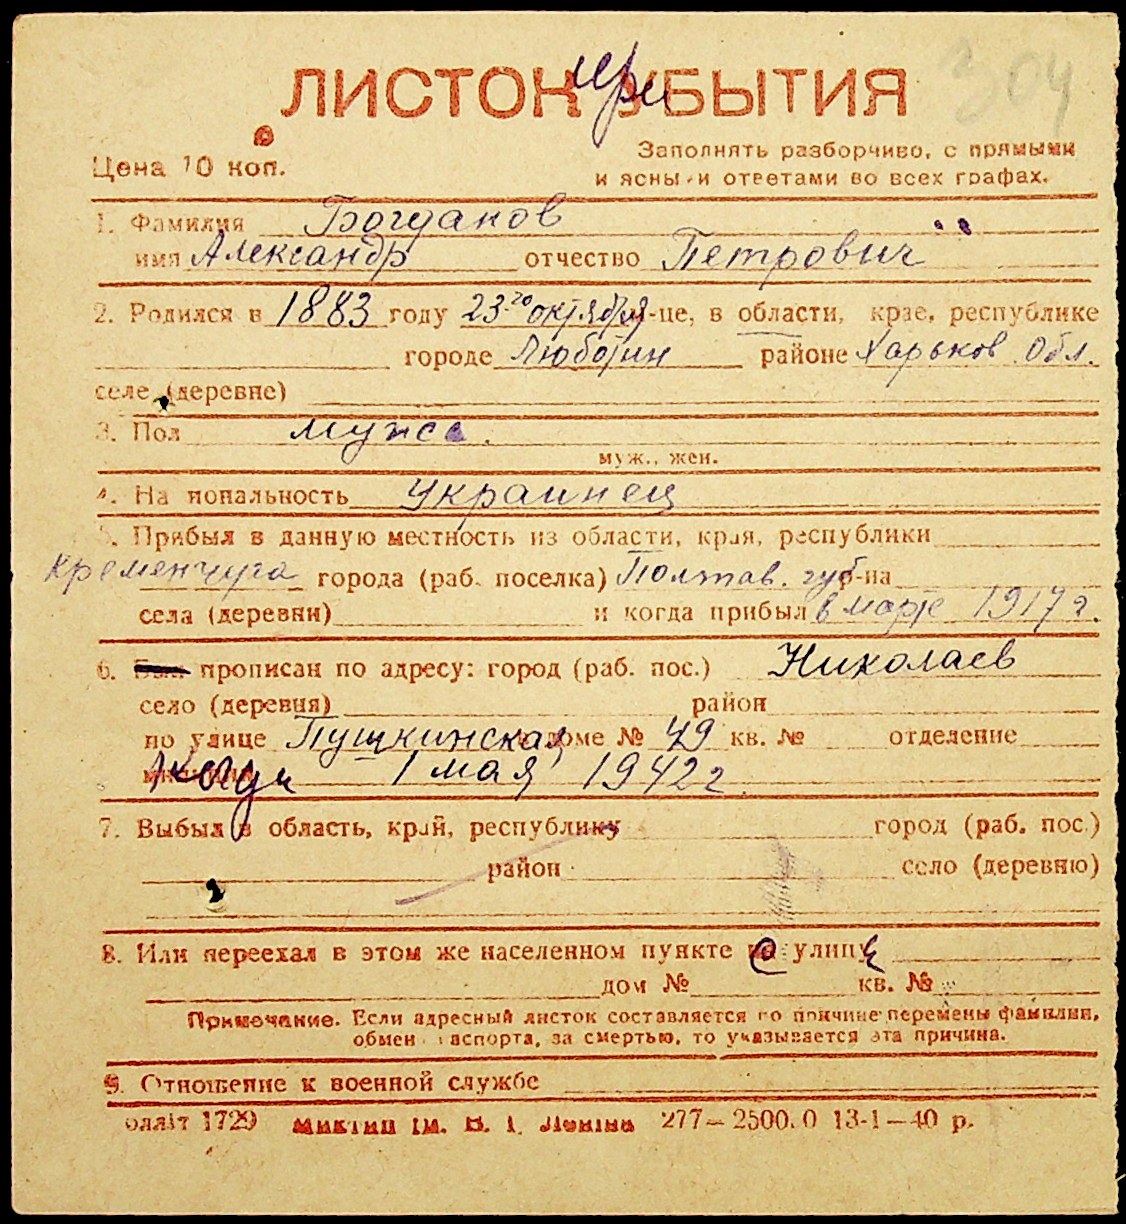 304
ЛИСТОК при УБЫТИЯ
Цена 10 коп.
Заполнять разборчиво, с прямыми
и ясными ответами во всех графах.
1. Фамилия Богданов
имя Александр отчество Петрович
2. Родился в 1883 году 23го октября м-це, в области, крае, республике
городе Люботин районе Харьков. Обл.
селе (деревне)
3. Пол мужс
муж., жен.
4. Национальность украинец
5. Прибыл в данную местность из области, края, республики
Кременчуга города (раб. поселка) Полтав. губ р-на
села (деревни) и когда прибыл в марте 1917 г.
6. Был прописан по адресу: город (раб. пос.) Николаев
село (деревня) район
по улице Пушкинская доме № 49 кв. № отделение
милиции Когда 1 мая 1942 г
7. Выбыл в область, край, республику город (раб. пос.)
район село (деревню)
8. Или переехал в этом же населенном пункте с улицы
дом № кв. №
Примечание. Если адресный листок составляется по причине перемены фамилии,
обмен паспорта, за смертью, то указывается эта причина.
9. Отношение к военной службе
олліт 1729 Миктип ім. В. І. Леніна 277—2500.0 13-1—40 р.